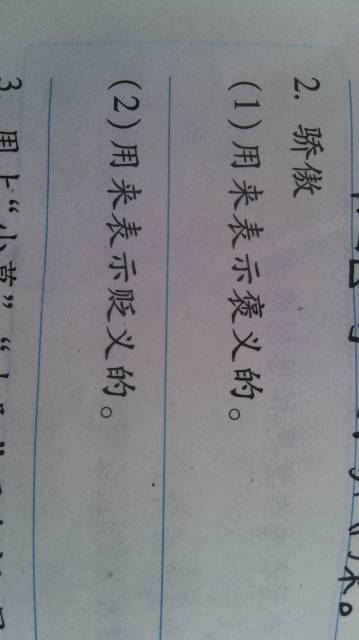 2. 骄傲
(1)用来表示褒义的。
(2)用来表示贬义的。
3. 用上“小草”“